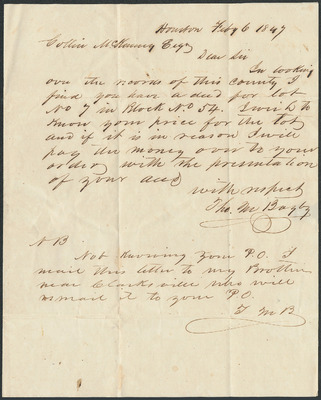 Houston Feby 6 1847
Collin McKinney Esqr
Dear Sir
In looking
over the records of this county I
find you have a deed for lot
No 7 in Block No 54. I wish to
know your price for the lot
and if it is in reason I will
pay the money over to your
order with the presentation
of your deed
with respect
Tho. M Bagby
N B
Not knowing your P.O. I
mail this letter to my Brother
near Clarksville who will
remail it to your P.O.
T M B